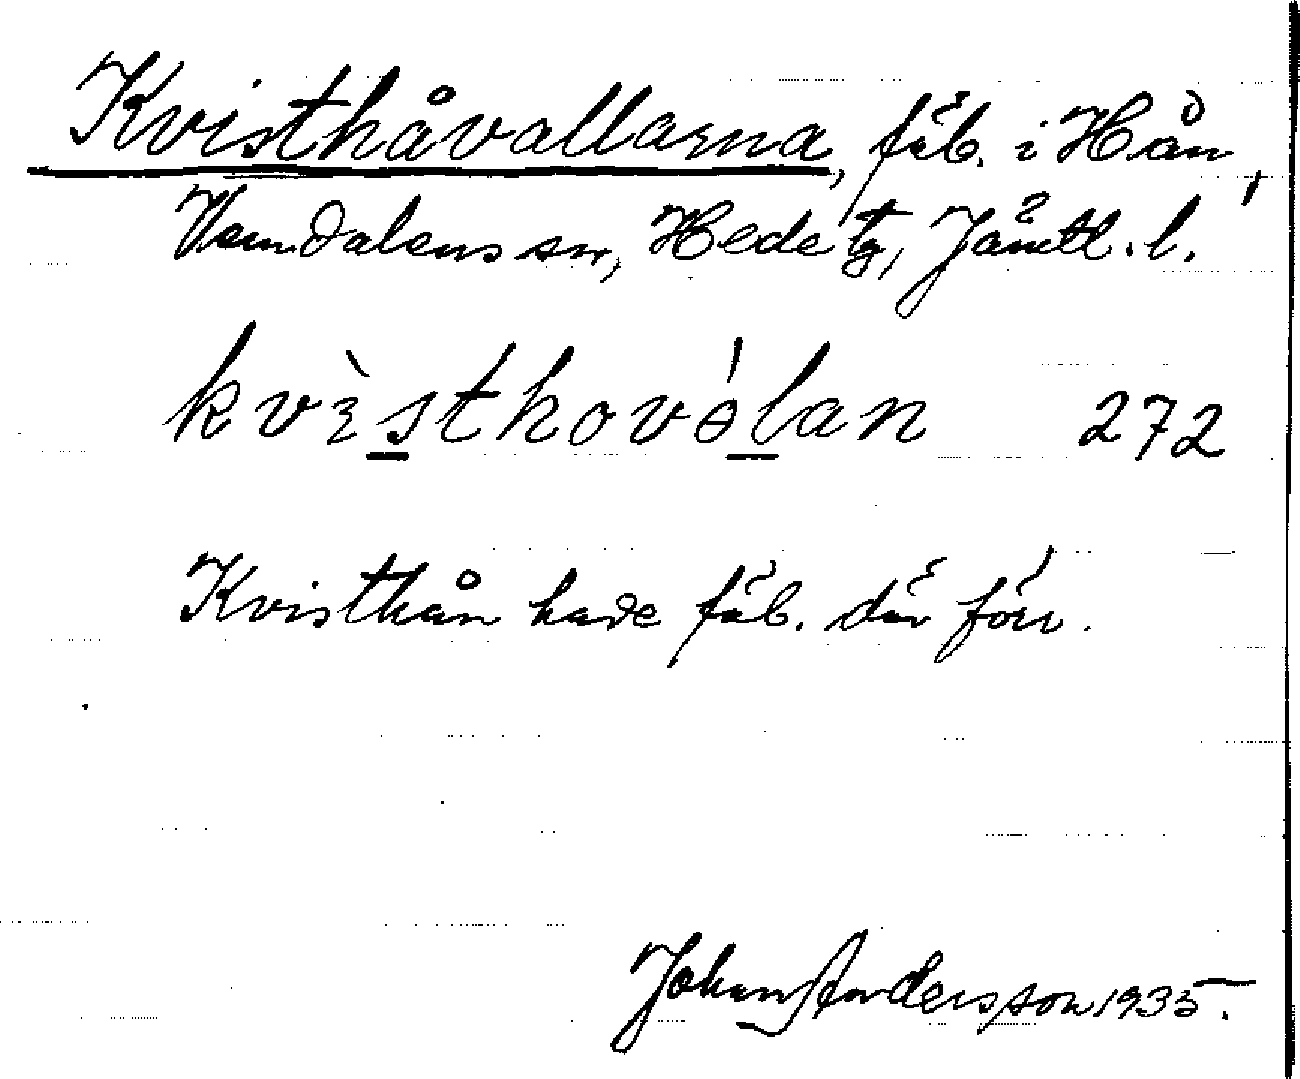 Kvisthåvallarna, fäb. i Hån,
Vemdalens sn, Hede tg, Jämtl. l.
kvìsthovɵ́lan 272
Kvisthån hade fäb. där förr.
Johan Andersson 1935.